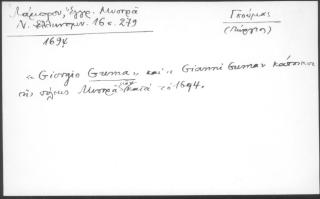 Λάμπρου, ἔγγρ. Μυστρᾶ
Ν. Ἑλληνομν. 16 σ. 279
1694
Γκιούμας
(Γιώργιος)
« Giorgio Guma » καὶ « Gianni Guma » κάτοικοι
τῆς πόλεως Μυστρᾶ κατὰ τὸ 1694.